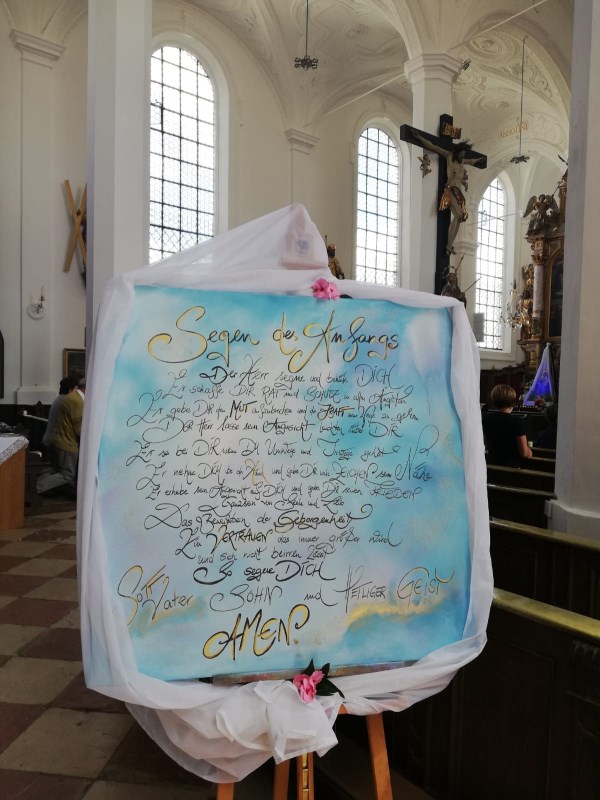 Segen des Anfangs
Der Herr segne und behüte DICH
Er schaffe DIR RAT und SCHUTZ in allen Ängsten
Er gebe DIR den MUT aufzubrechen und die KRAFT neue Wege zu gehen
DER Herr lasse sein Angesicht leuchten über DIR
Er sei bei DIR wenn DU Umwege und Irrwege gehst
Er nehme DICH bei der Hand und gebe DIR viele ZEICHEN seiner Nähe
Er erhebe sein Angesicht auf DICH und gebe DIR seinen FRIEDEN
von Seele und Leib
Das Bewusstsein der Geborgenheit
Ein VERTRAUEN das immer größer wird
und sich nicht beirren lässt
So segne DICH
GOTT Vater SOHN und HEILIGER GEIST
AMEN